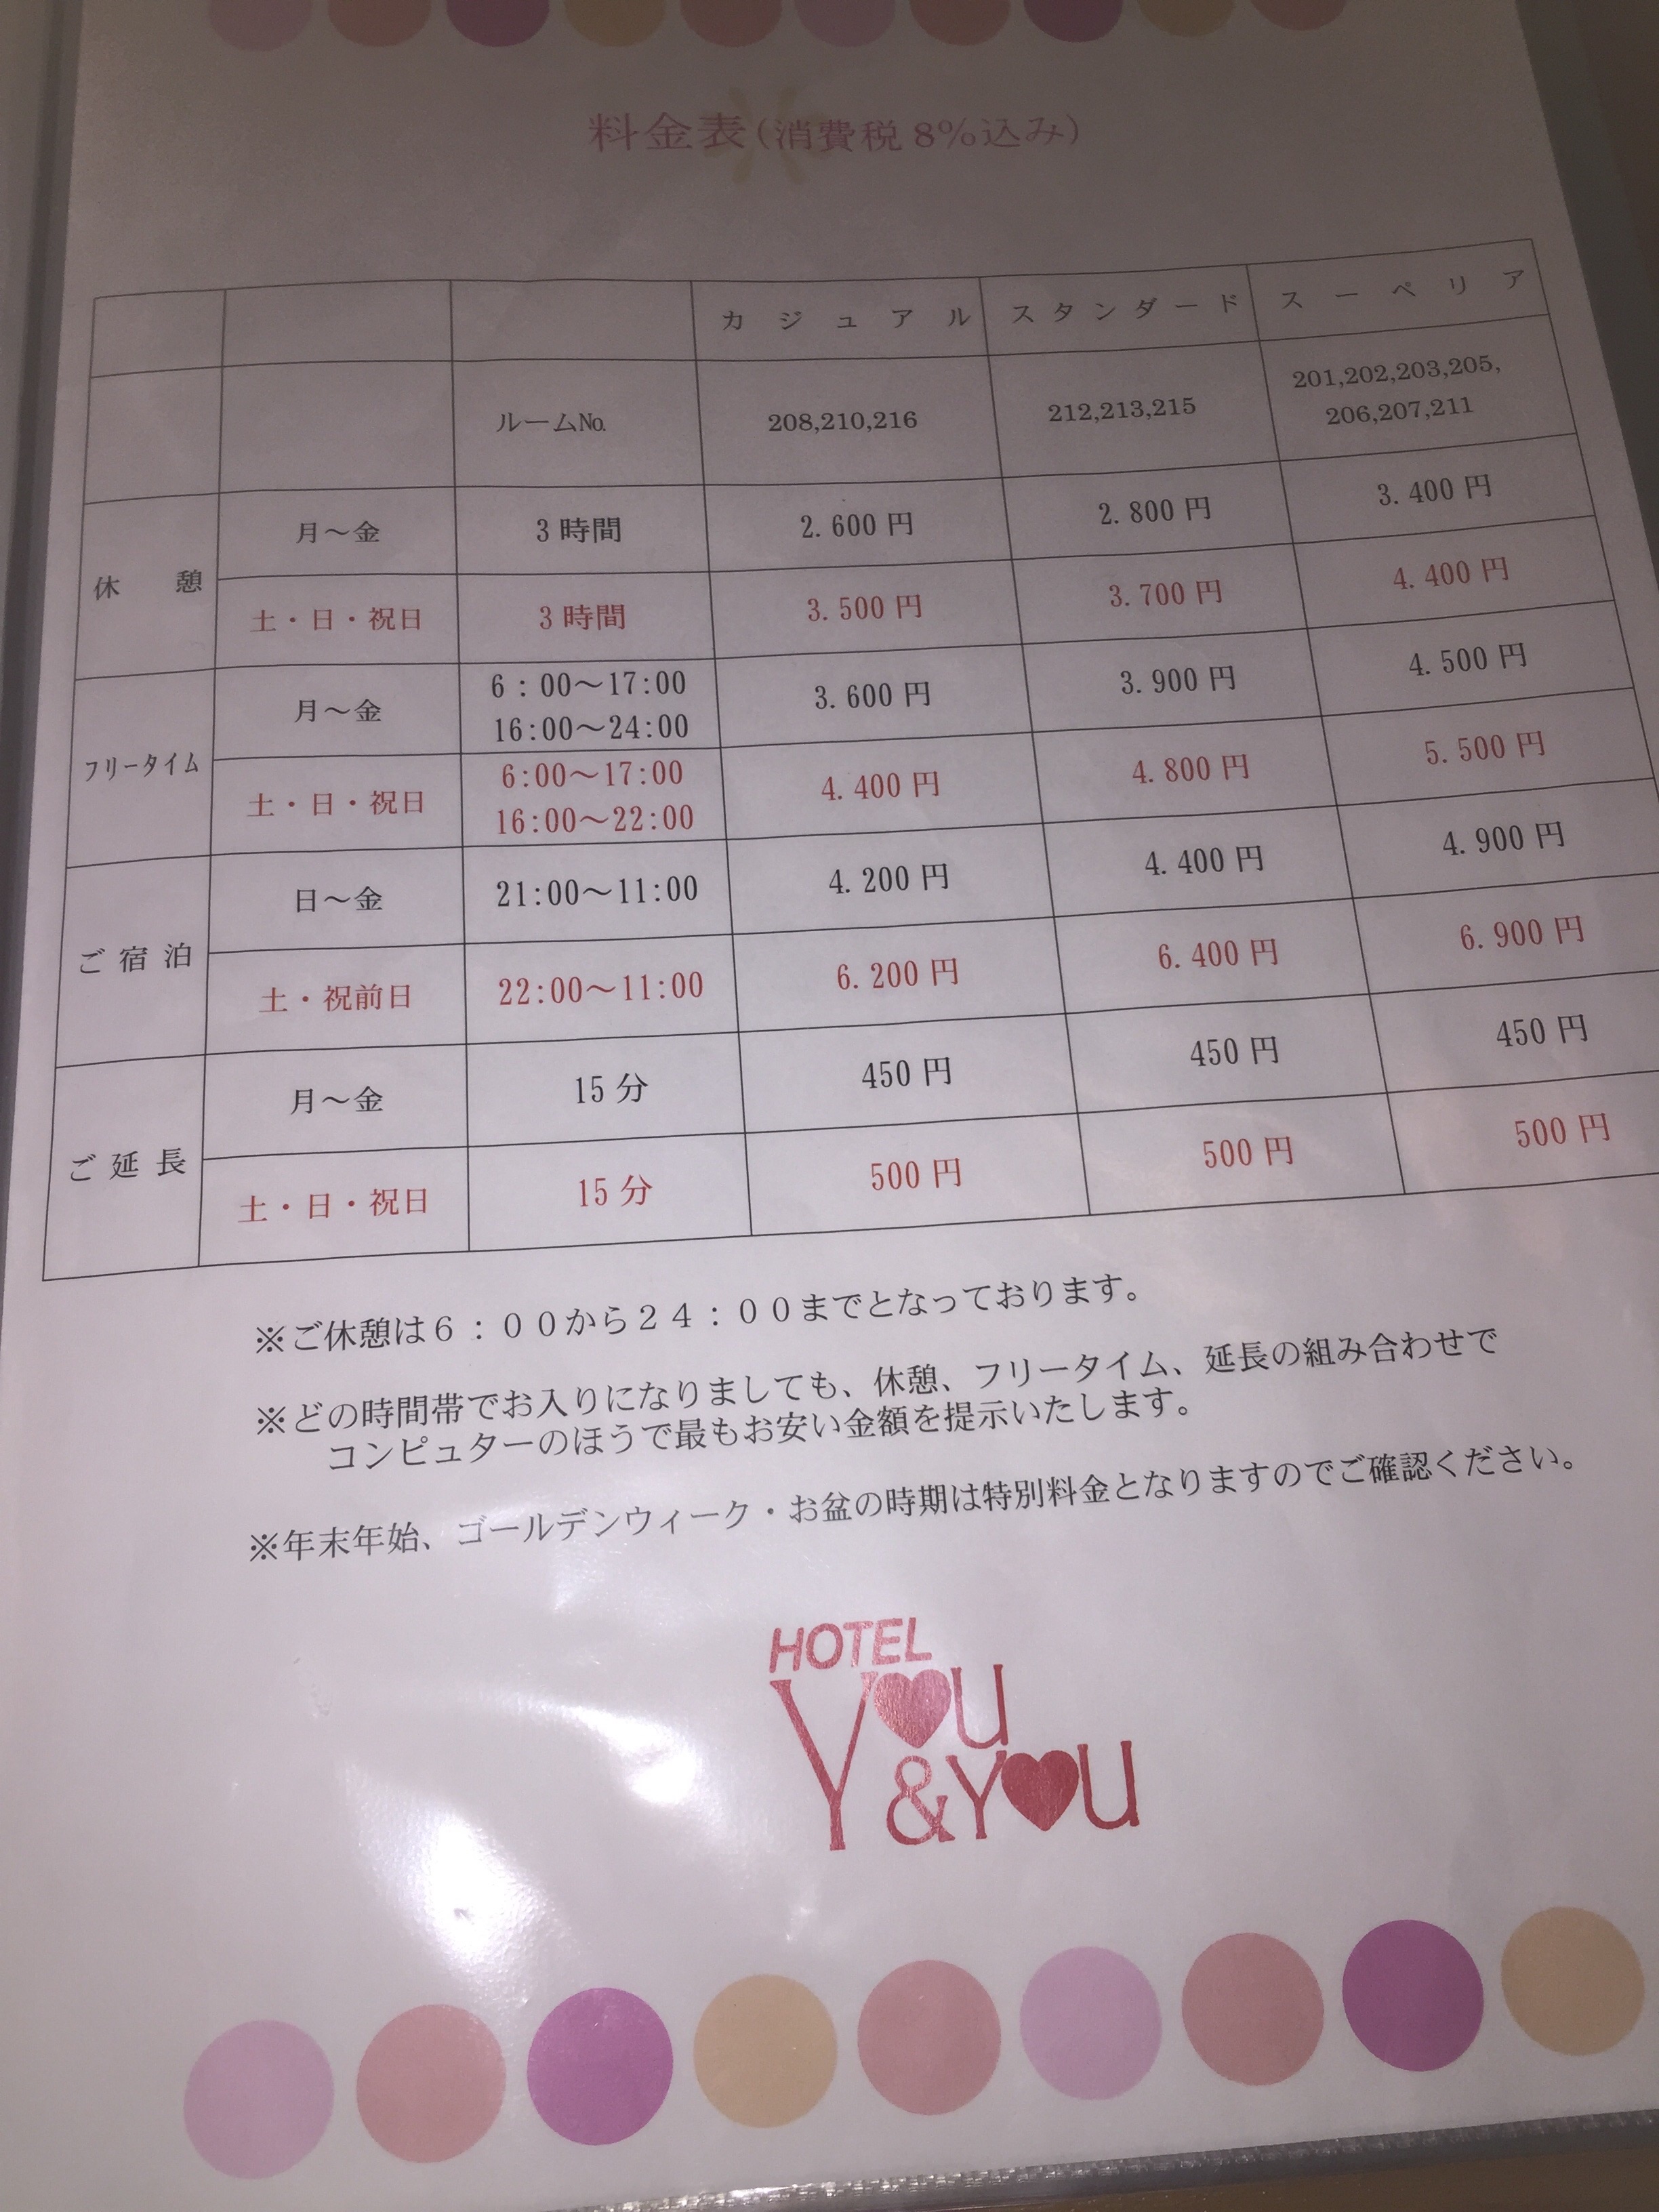 料金表(消費税 8%込み)
カジュアル スタンダード スーペリア
ルームNo. 208,210,216 212,213,215 201,202,203,205,
206,207,211
休憩 月～金 3 時間 2.600 円 2.800 円 3.400 円
土・日・祝日 3 時間 3.500 円 3.700 円 4.400 円
フリータイム 月～金 6:00～17:00 3.600 円 3.900 円 4.500 円
16:00～24:00
土・日・祝日 6:00～17:00 4.400 円 4.800 円 5.500 円
16:00～22:00
ご宿泊 日～金 21:00～11:00 4.200 円 4.400 円 4.900 円
土・祝前日 22:00～11:00 6.200 円 6.400 円 6.900 円
ご延長 月～金 15 分 450 円 450 円 450 円
土・日・祝日 15 分 500 円 500 円 500 円
※ご休憩は６：００から２４：００までとなっております。
※どの時間帯でお入りになりましても、休憩、フリータイム、延長の組み合わせで
コンピュターのほうで最もお安い金額を提示いたします。
※年末年始、ゴールデンウィーク・お盆の時期は特別料金となりますのでご確認ください。
HOTEL
You
&You